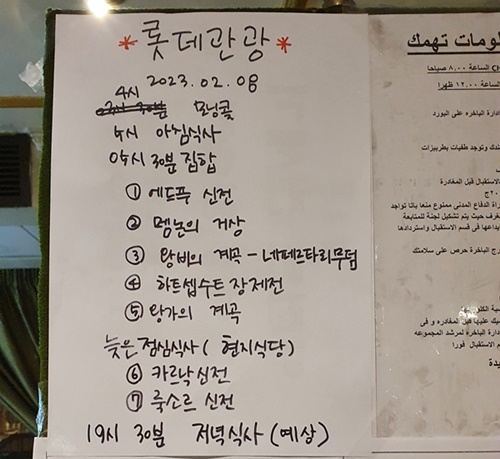 *롯데관광*
2023.02.08
4시
03시 30분 모닝콜
4시 아침식사
04시 30분 집합
① 에드푸 신전
② 멤논의 거상
③ 왕비의 계곡 - 네페르타리무덤
④ 하트셉수트 장제전
⑤ 왕가의 계곡
늦은 점심식사 ( 현지식당)
⑥ 카르낙 신전
⑦ 룩소르 신전
19시 30분 저녁식사 (예상)
لومات تهمك
الساعة ٨,٠٠ صباحا
الساعة ١٢,٠٠ ظهرا
ادارة الباخره على البورد
ندك وتوجد طفيات بطربيزات
لاستقبال قبل المغادرة
راة الدفاع المدنى ممنوع منعا باتا تواجد
غرف حيث يتم تشكيل لجنة للمتابعة
يداعها فى قسم الاستقبال واستردادها
رج الباخرة حرص على سلامتك
يك عليها قبل المغادره و فى
دارة الباخره لمرشد المجموعه
م الاستقبال فورا
يدة